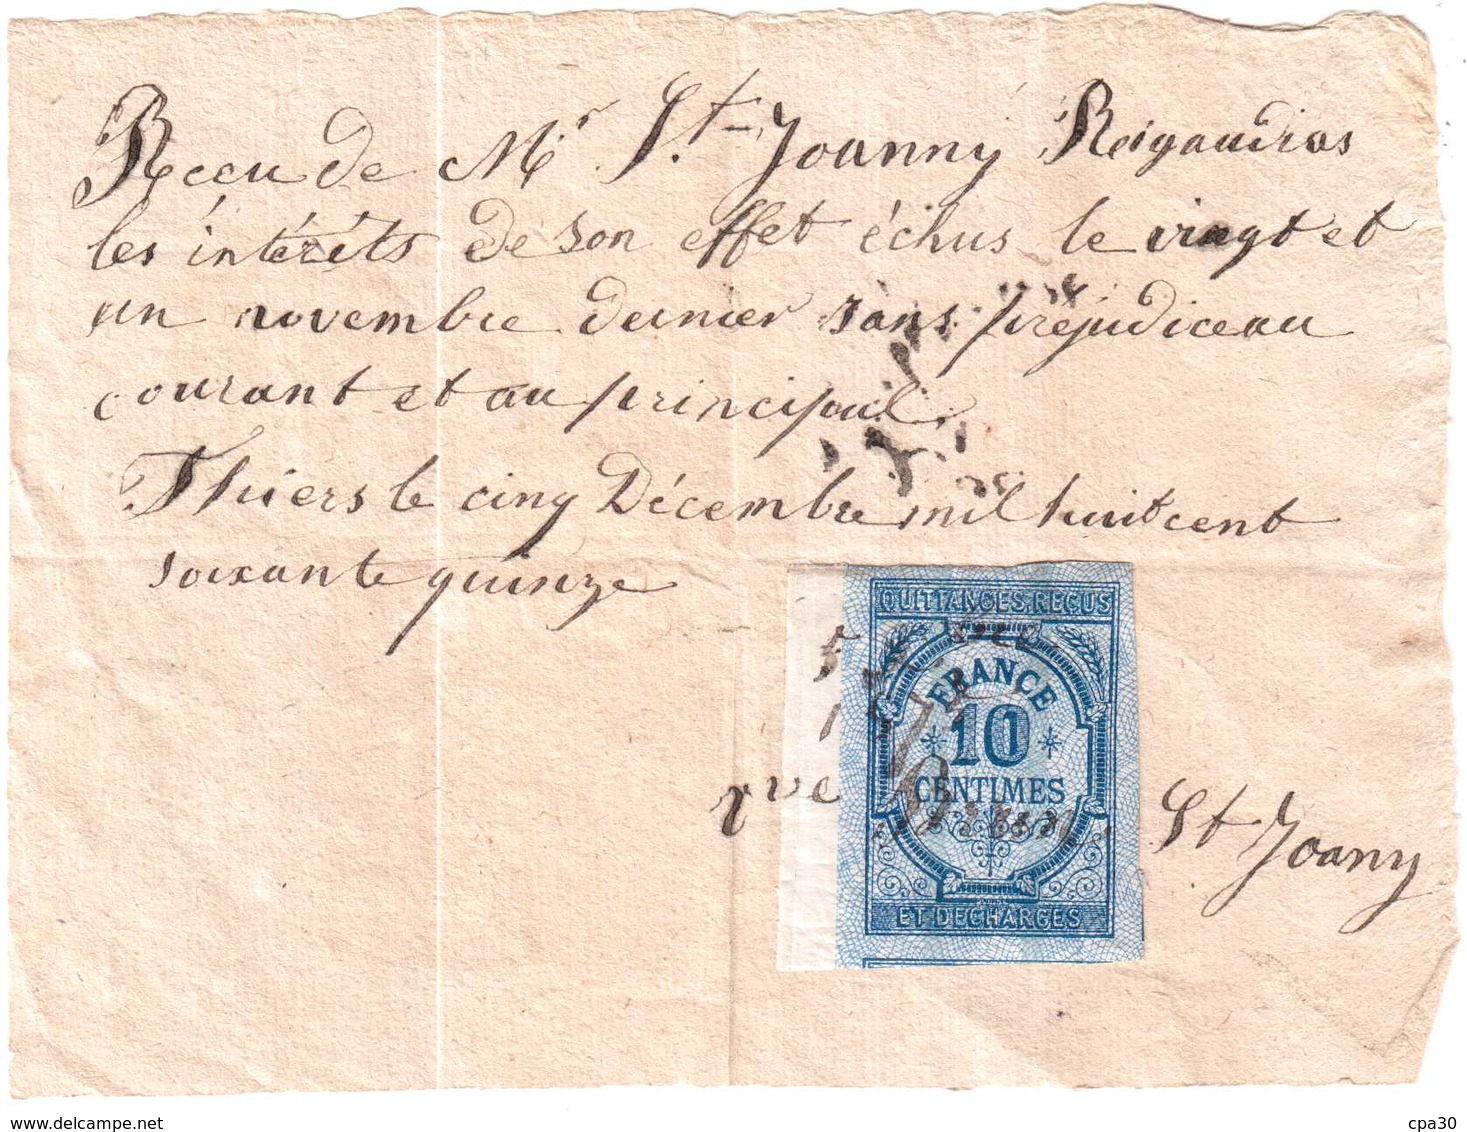 Reçu de Mr. St. Joanny Rigaudias
les intérêts de son effet échus le vingt et
un novembre dernier sans préjudice au
courant et au principal.
Thiers le cinq Décembre mil huit cent
soixante quinze
QUITTANCES, REÇUS
5
FRANCE
10
CENTIMES
ET DECHARGES
Vve
St Joany
delcampe.net
cpa30